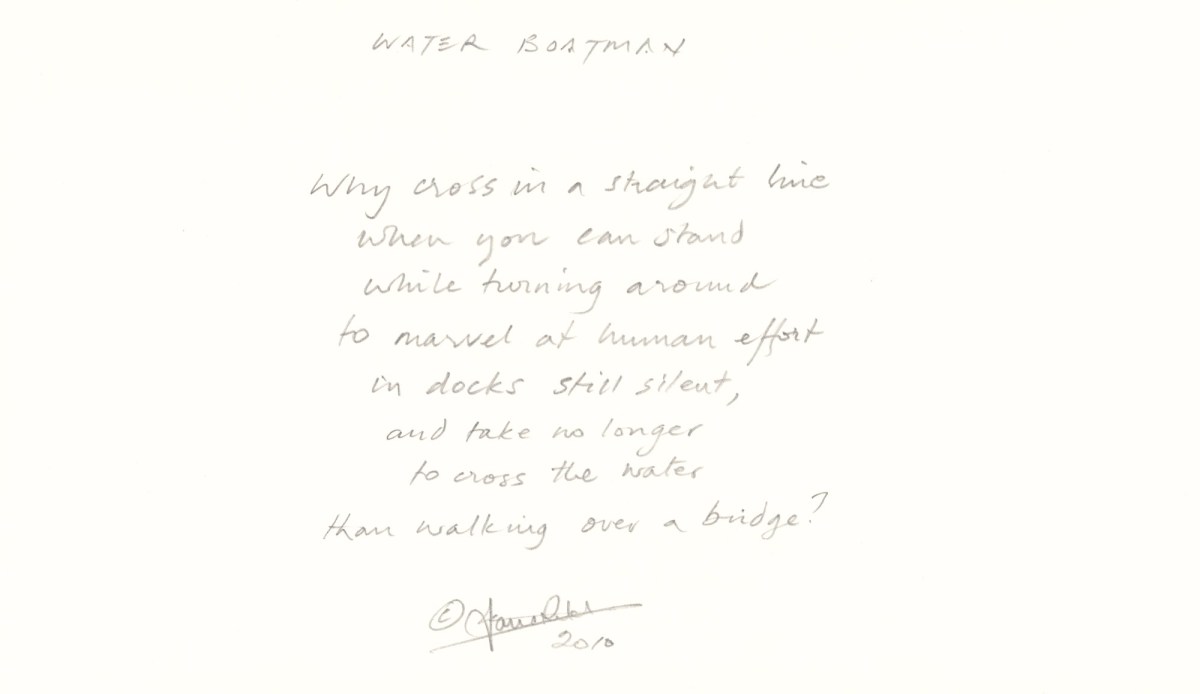 WATER BOATMAN
Why cross in a straight line
when you can stand
while turning around
to marvel at human effort
in docks still silent,
and take no longer
to cross the water
than walking over a bridge?
©
2010